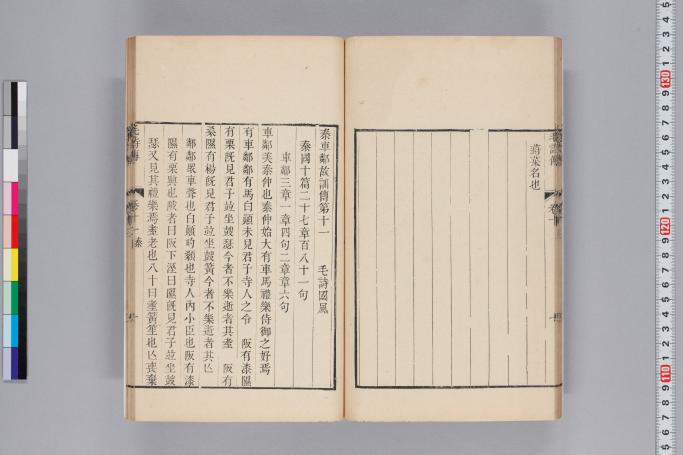 萷菜名也
秦車鄰故訓傳第十一　毛詩國風
秦國十篇二十七章百八十一句
車鄰三章一章四句二章章六句
車鄰美秦仲也秦仲始大有車馬禮樂侍御之好焉
有車鄰鄰有馬白顚未見君子寺人之令　阪有漆隰
有栗旣見君子竝坐鼓瑟今者不樂逝者其耋　阪有
桑隰有楊旣見君子竝坐鼓簧今者不樂逝者其亾
鄰鄰衆車聲也白顚的顙也寺人內小臣也阪有漆
隰有栗興也陂者曰阪下溼曰隰旣見君子竝坐鼓
瑟又見其禮樂焉耋老也八十曰耋簧笙也亾喪棄
毛詩傳
卷十一　秦
130
120
110